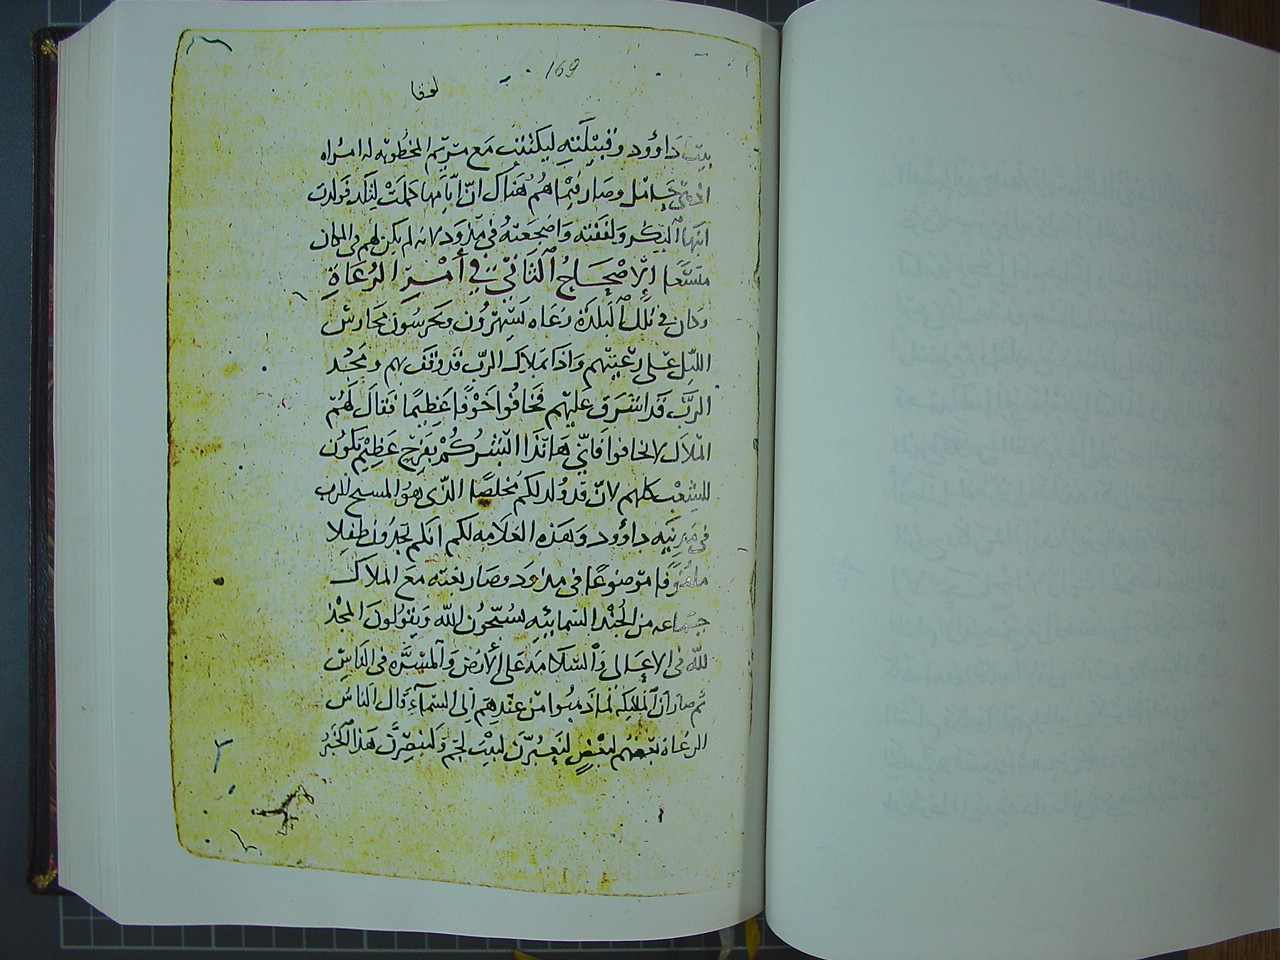 169
لوقا
بيت داوود وقبيلته ليكتتب مع مريم المخطوبه له امراه
وهي حامل وصار فيما هم هناك ان ايامها كملت لتلد فولدت
ابنها البكر ولففته واضجعته في مزود لانه لم يكن لهم في المكان
متسعا الاصحاح الثاني في أمر الرعاة
وكان في تلك البلدة رعاه يسهرون ويحرسون محارس
الليل على رعيتهم واذا بملاك الرب قد وقف بهم ومجد
الرب قد اشرق عليهم فخافوا خوفا عظيما فقال لهم
الملاك لا تخافوا فاني هانذا ابشركم بفرح عظيم يكون
للشعب كلهم لان قد ولد لكم مخلصا الذي هو المسيح الرب
في مدينة داوود وهذه العلامه لكم انكم تجدون طفلا
ملفوفا موضوعا في مزود وصار بغته مع الملاك
جماعه من الجند السمائيه يسبحون الله ويقولون المجد
لله في الاعلى والسلامه على الارض والمسره في الناس
ثم صار ان الملئكه لما ذهبوا من عندهم الى السماء قال الناس
الرعاة بعضهم لبعض لنعبرن لبيت لحم ولنبصرن هذا الخبر